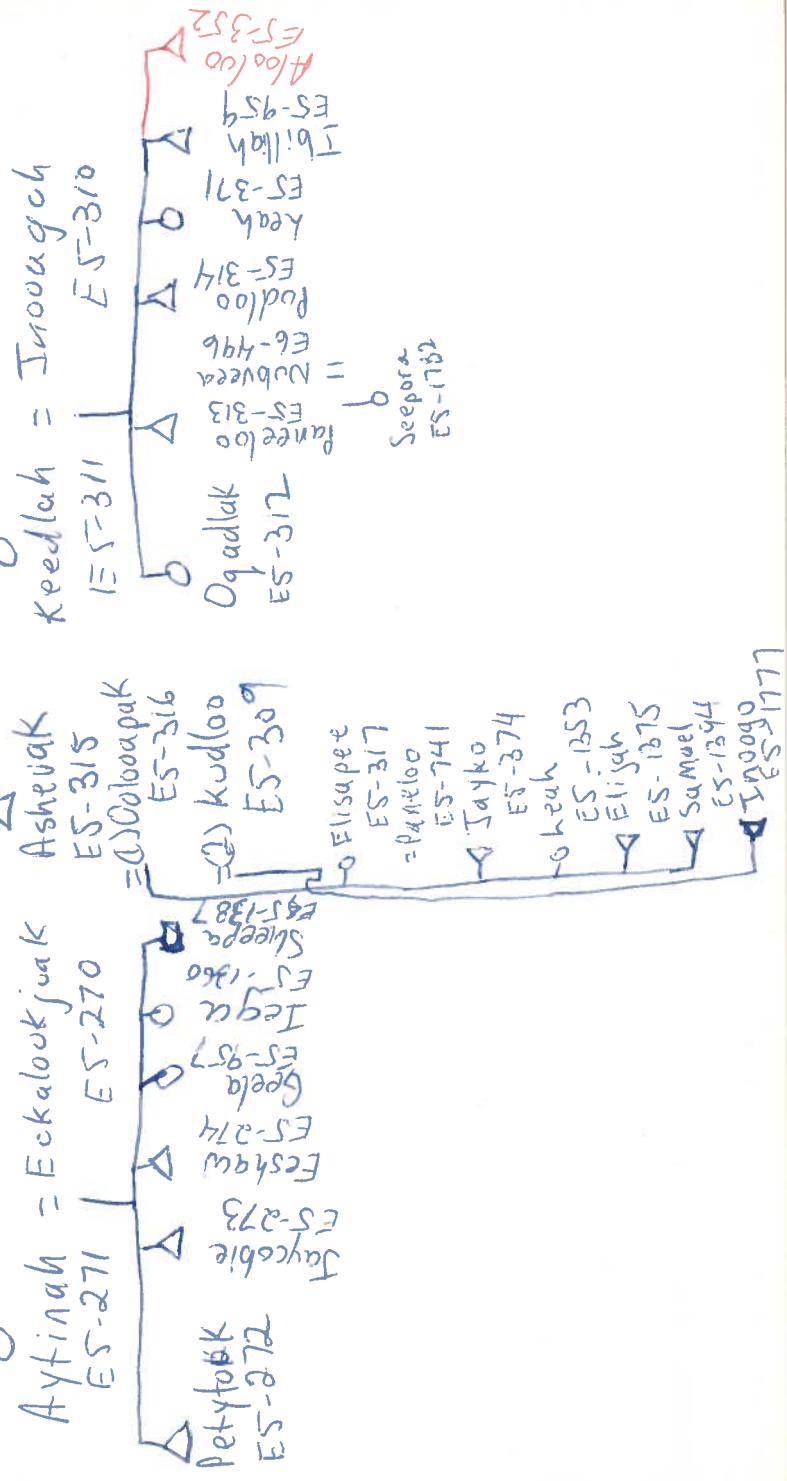 Aytinah = Eckalookjuak
E5-271
E5-270
Petytook
E5-272
Jaycobie
E5-273
Eeshaw
E5-274
Geela
E5-957
Iega
E5-1360
Sheepa
E5-1387
Ashevak
E5-315
=(1) Oolooapak
E5-316
=(2) Kudloo
E5-309
Elisapee
E5-317
=Paneloo
E5-741
Jayko
E5-374
Leah
E5-1353
Elijah
E5-1375
Samuel
E5-1394
Inoogo
E5-1777
Keedlah = Inoougch
E5-311
E5-310
Ogadlak
E5-312
Paneeloo
E5-313
= Nubveea
E6-496
Seepora
E5-1732
Pudloo
E5-314
Leah
E5-371
Ibilliah
E5-959
Alooloo
E5-352